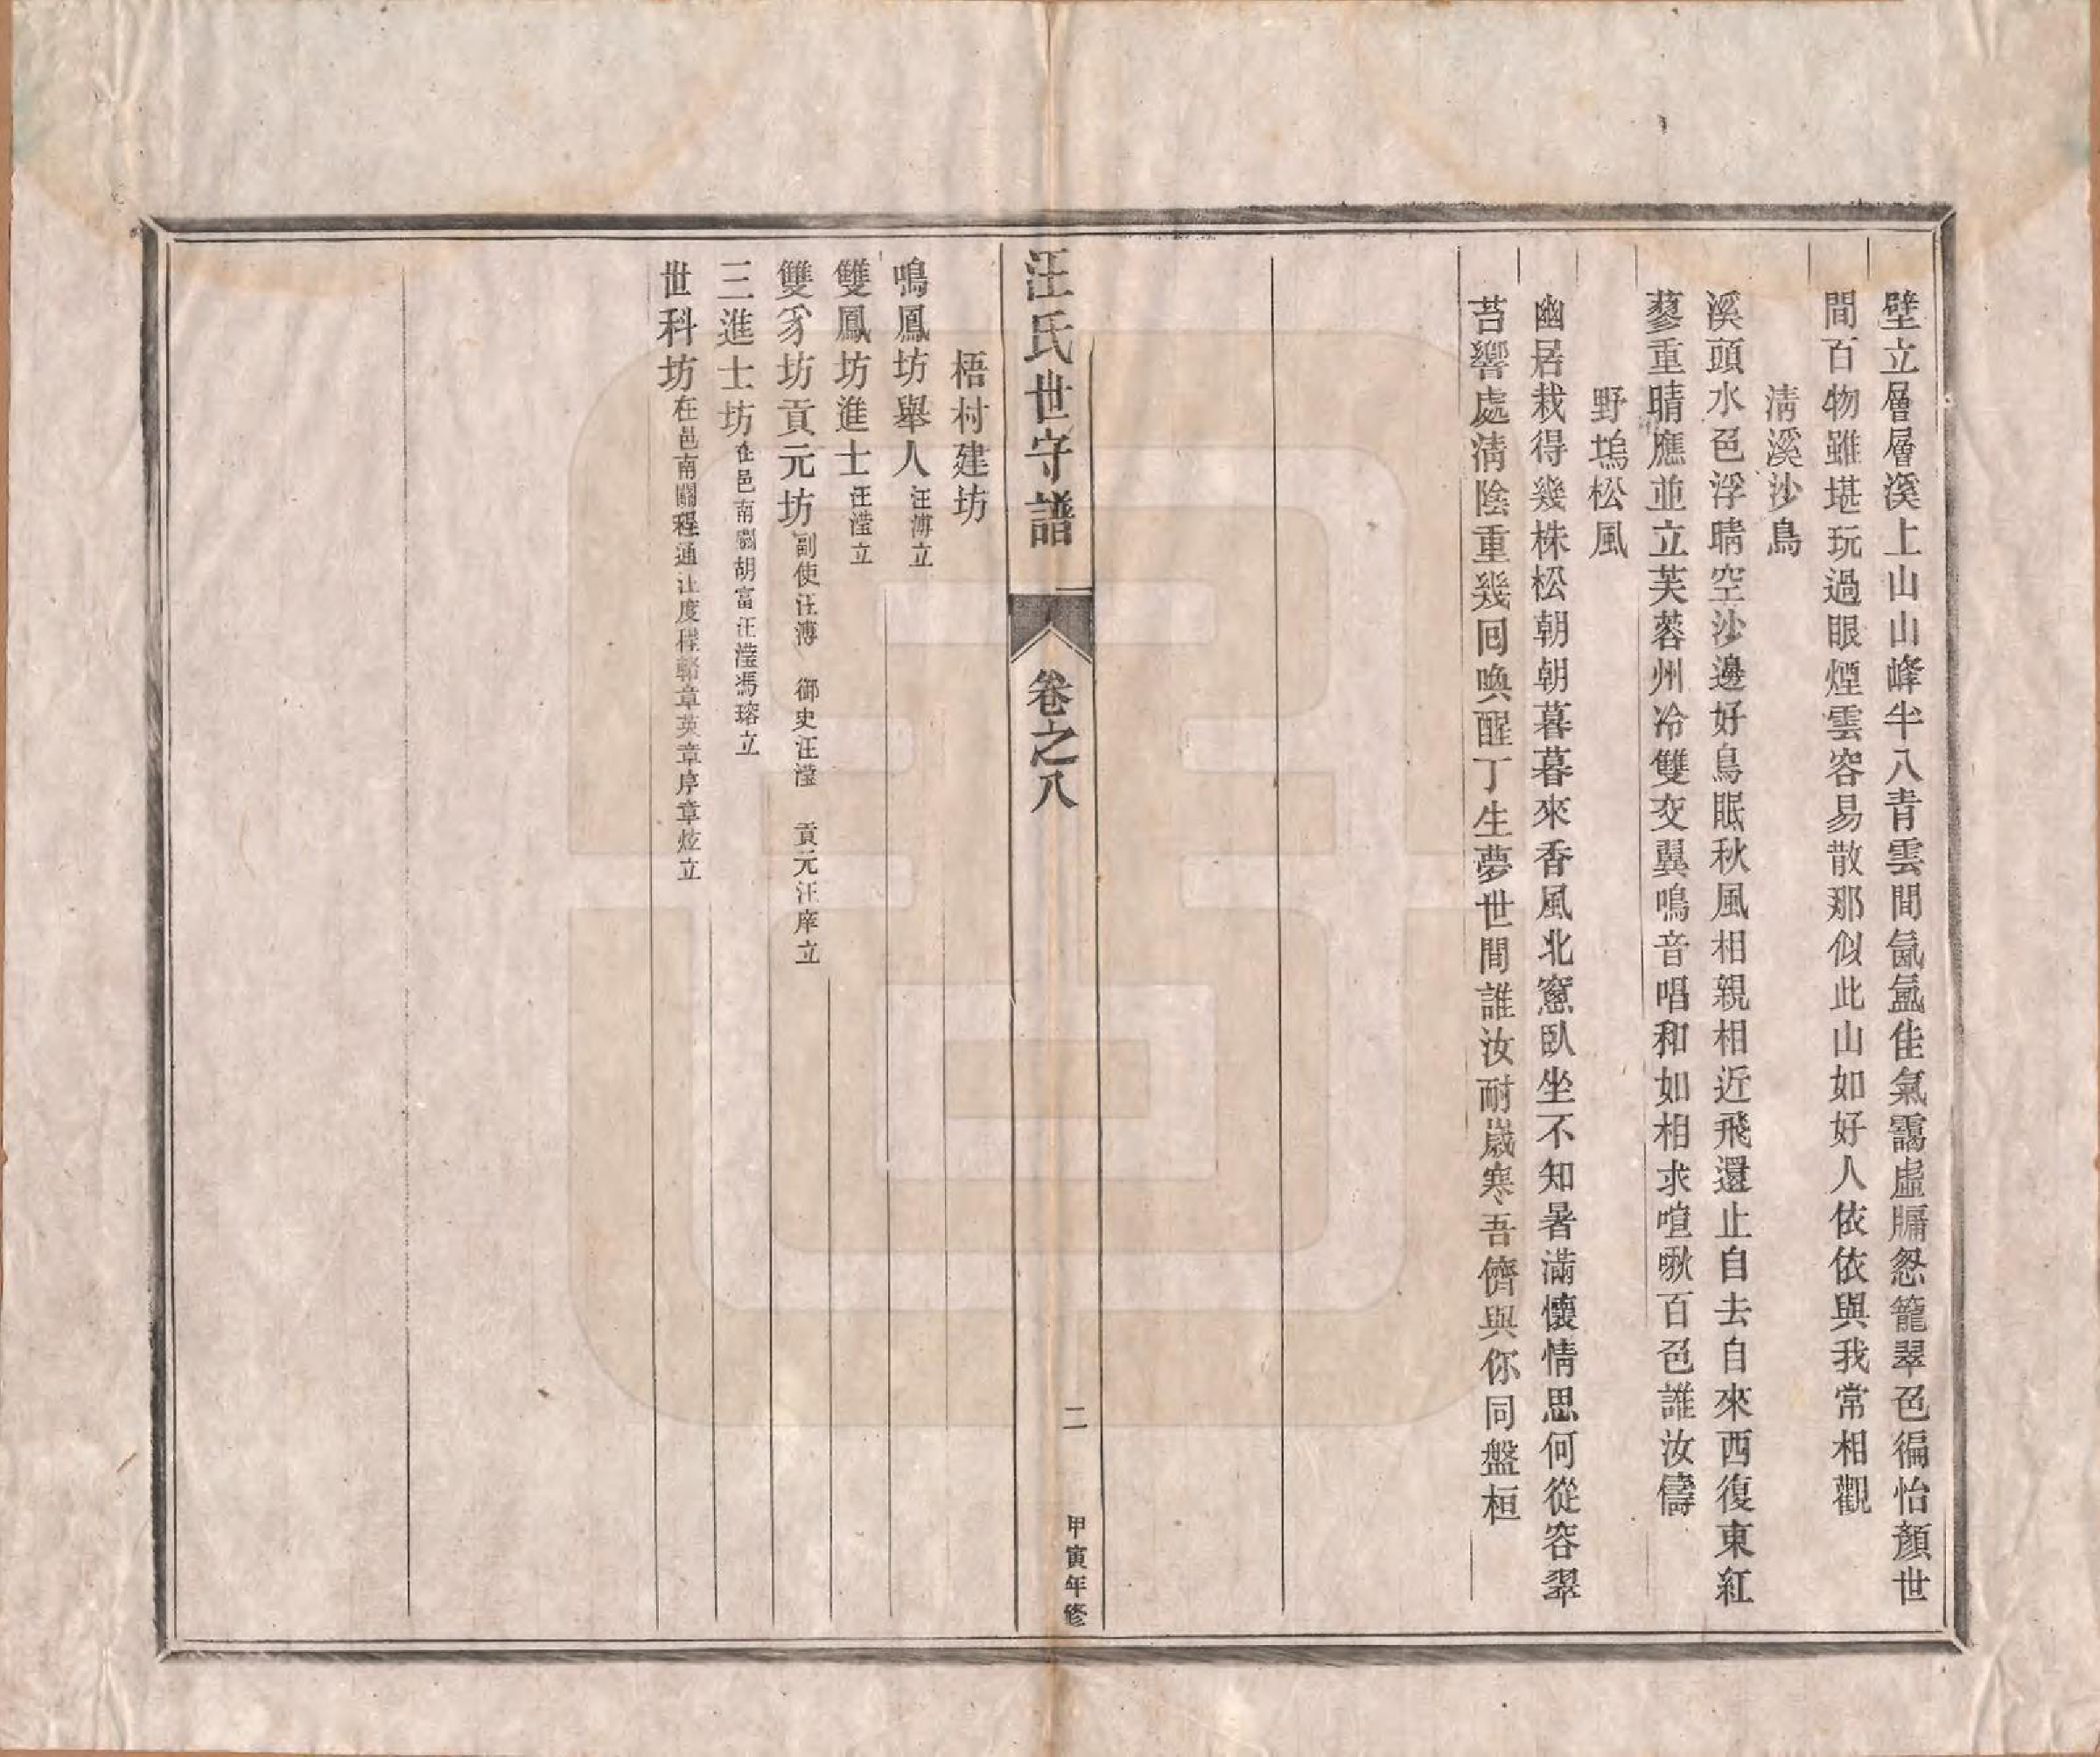 壁立層層溪上山山峰半入青雲間氤氳佳氣靄虛牖怱籠翠色徧怡顏世
間百物雖堪玩過眼煙雲容易散那似此山如好人依依與我常相觀
清溪沙鳥
溪頭水色浮晴空沙邊好鳥眠秋風相親相近飛還止自去自來西復東紅
蓼重晴應並立芙蓉州冷雙交翼鳴音唱和如相求喧啾百色誰汝儔
野塢松風
幽居栽得幾株松朝朝暮暮來香風北窻臥坐不知暑滿懷情思何從容翠
苔響處清陰重幾囘喚醒丁生夢世間誰汝耐歲寒吾儕與你同盤桓
汪氏世守譜
卷之八
二
甲寅年修
梧村建坊
鳴鳳坊舉人汪溥立
雙鳳坊進士汪瀅立
雙豸坊貢元坊副使汪溥 御史汪瀅 貢元汪庠立
三進士坊在邑南關胡富汪瀅馮瑢立
世科坊在邑南關程通 度程輅章英章序章炫立